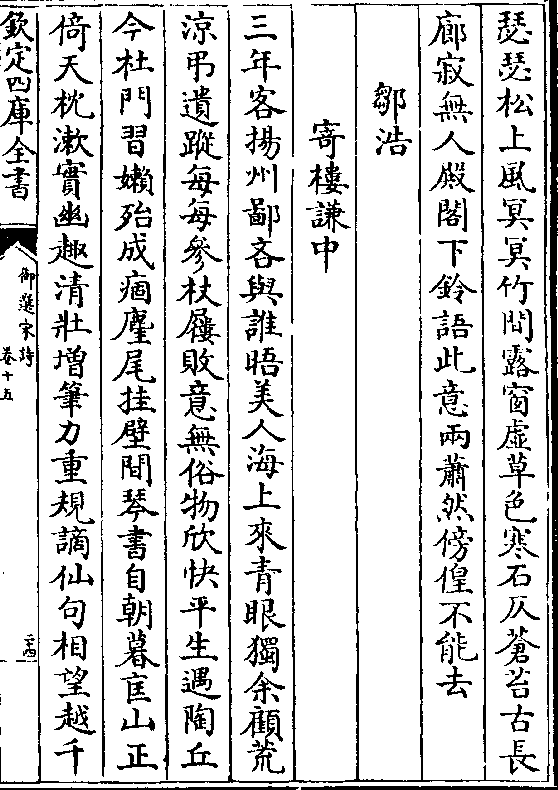 瑟瑟松上風冥冥竹間露窗虛草色寒石仄蒼苔古長
廊寂無人殿閣下鈴語此意兩蕭然傍偟不能去
鄒浩
寄樓謙中
三年客揚州鄙吝與誰晤美人海上來青眼獨余顧荒
涼弔遺蹤每每參杖屨敗意無俗物欣快平生遇陶丘
今杜門習嬾殆成痼麈尾挂壁間琴書自朝暮匡山正
倚天枕漱實幽趣清壯增筆力重規謫仙句相望越千
欽定四庫全書
御選宋詩
卷十五
二四